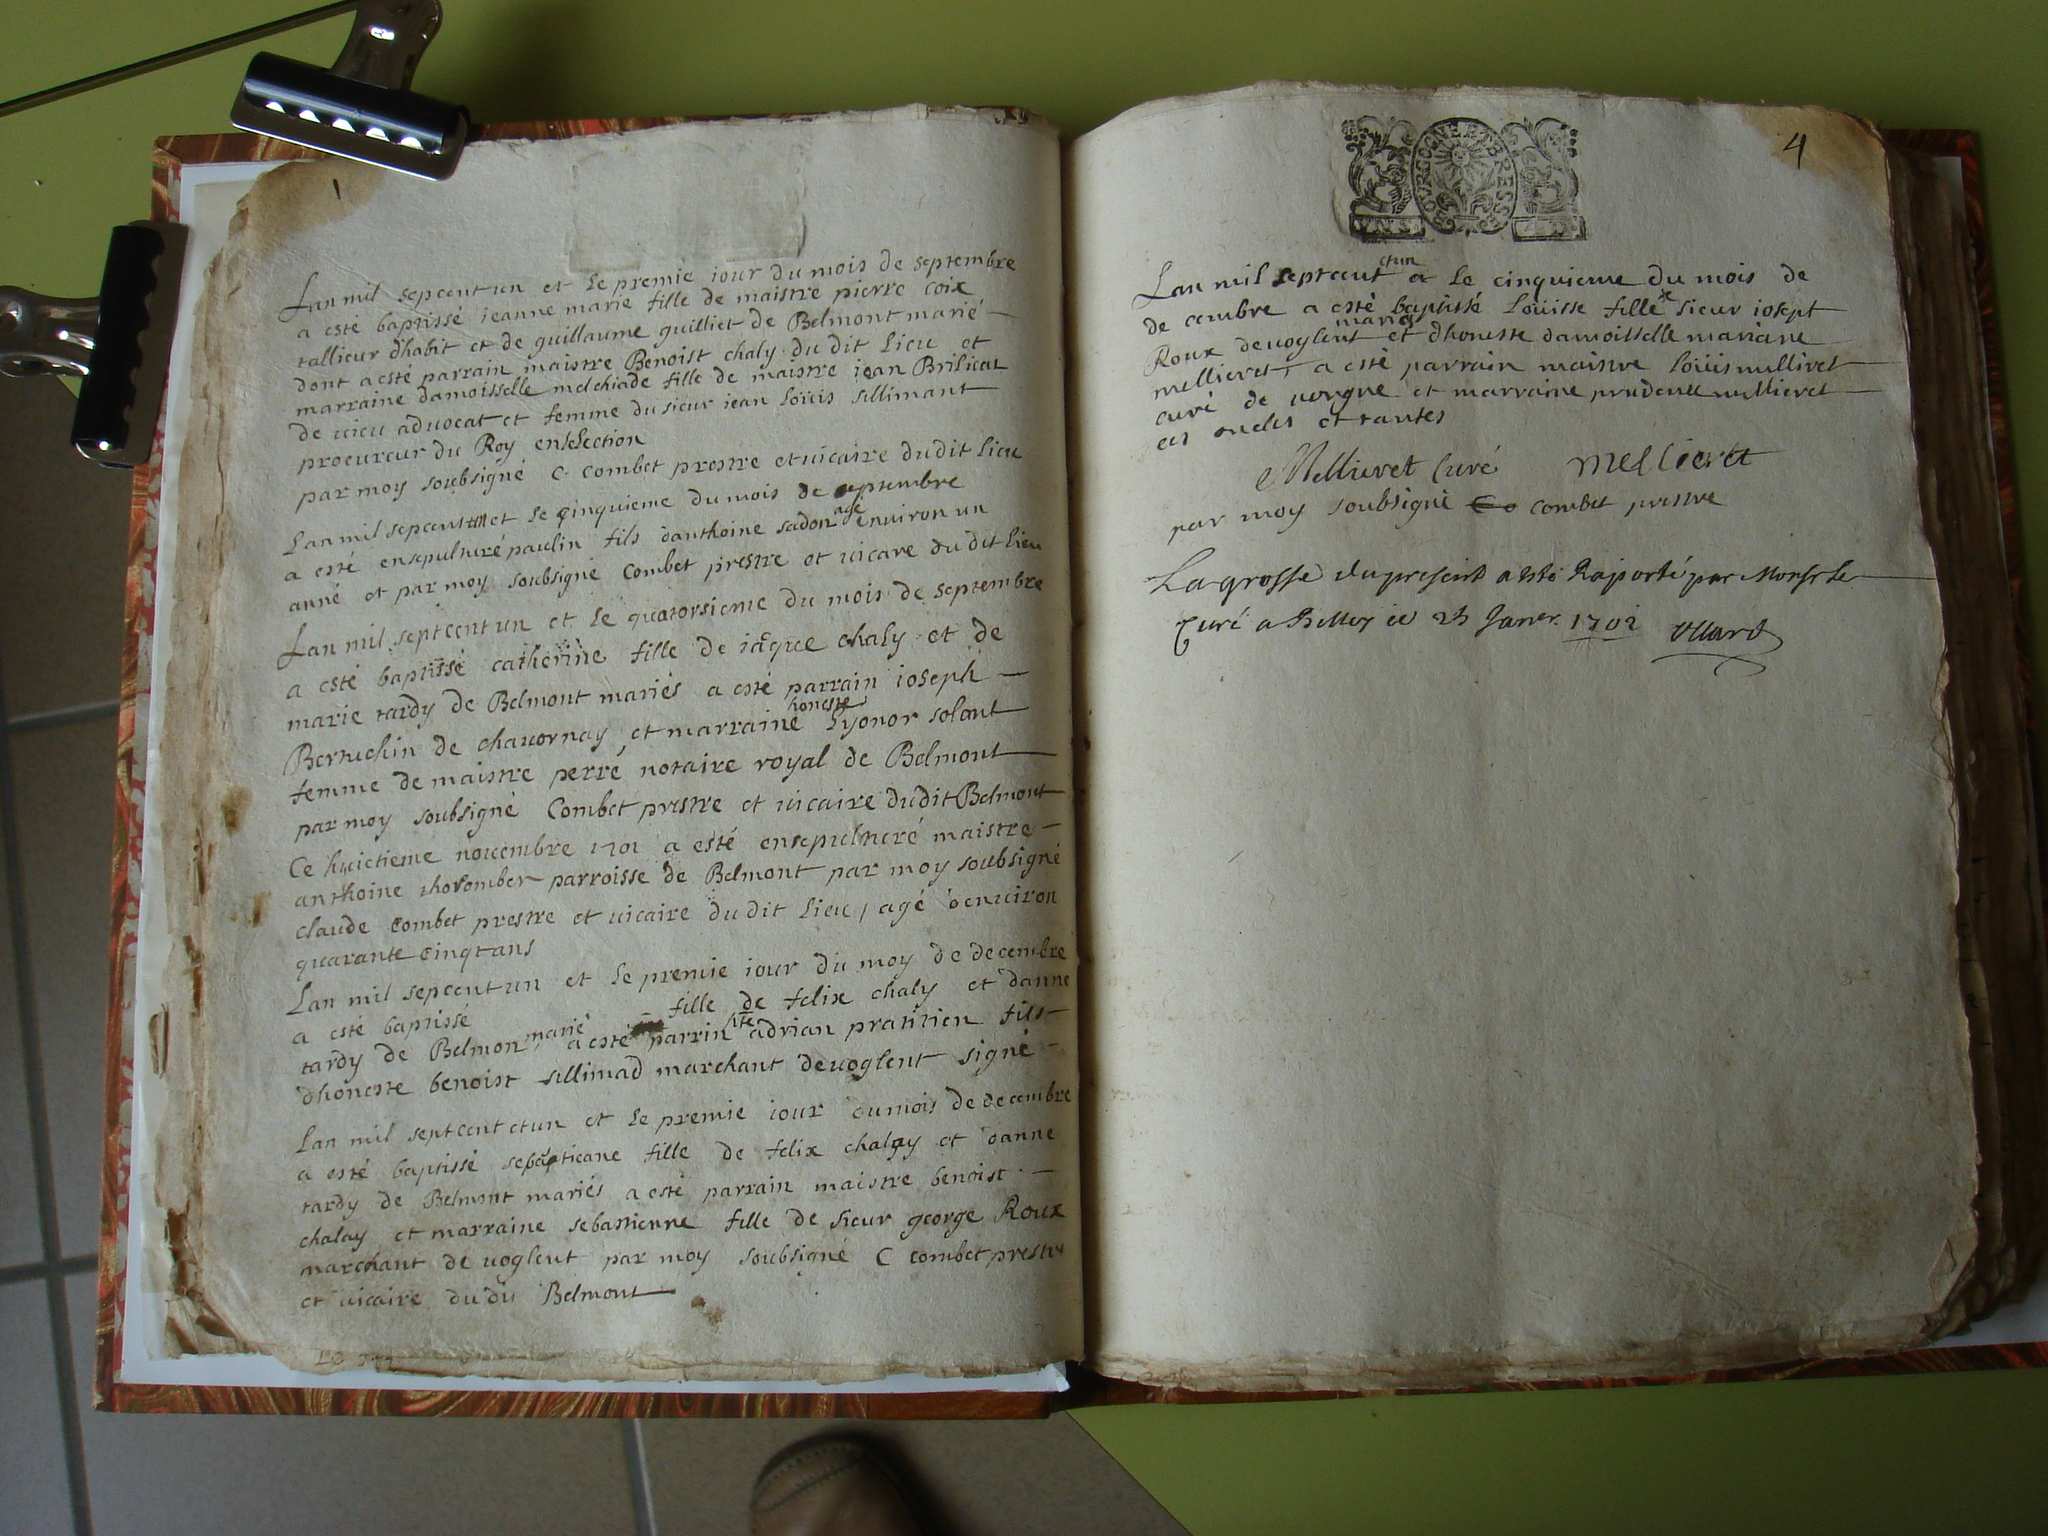 1
Lan mil sepcent un et le premie iour du mois de septembre
a esté baptissé ieanne marie fille de maistre pierre coix
tallieur dhabit et de guillaume guilliet de Belmont marié
dont a esté parrain maistre Benoist chaly du dit lieu et
marraine damoisselle melchiade fille de maistre iean Brilicat
de uieu aduocat et femme du sieur iean Loüis sillimant
procureur du Roy enlelection
par moy soubsigné C. Combet prestre et uicaire du dit lieu
Lan mil sepcent un et le cinquieme du mois de septembre
a esté ensepulturé paulin fils danthoine sadon agé enuiron un
anné et par moy soubsigné Combet prestre et uicare du dit lieu
Lan mil septcent un et le quatorsieme du mois de septembre
a esté baptissé catherine fille de iacque chaly et de
marie tardy de Belmont mariés a esté parrain ioseph
Bertuchin de chauornay et marraine honeste Lyonor solant
femme de maistre perré notaire royal de Belmont
par moy soubsigné Combet prestre et uicaire du dit Belmont
Ce huictieme nouembre 1701 a esté ensepulturé maistre
anthoine parroisse de Belmont par moy soubsigné
claude Combet prestre et uicaire du dit lieu, agé denuiron
quarante cinqt ans
Lan mil sepcent un et le premie iour du moy de decembre
a esté baptissé fille de felix chaly et danne
tardy de Belmon marié a esté parrin hte adrian pratitien fils
dhoneste benoist sillimad marchant deuoglent signé
Lan mil septcent et un et le premie iour du mois de decembre
a esté baptissé sebasticane fille de felix chalay et danne
tardy de Belmont mariés a esté parrain maistre benoist
chalay et marraine sebastienne fille de sieur george Roux
marchant de uoglent par moy soubsigné C combet prestre
et uicaire du du Belmont
4
Lan mil septcent et un a le cinquieme du mois de
de cembre a esté baptissé Loüisse fille de sieur iosept
Roux deuoglent mariés et dhoneste damoisselle mariane
mellieret, a esté parrain maistre Loüis mellieret
curé de uongne et marraine prudence mellieret
ces oncles et tantes
Mellieret Curé Mellieret
par moy soubsigné Co combet prestre
La grosse du present a esté Raporté par Monsr le
Curé a Belley ce 23 Janer. 1702